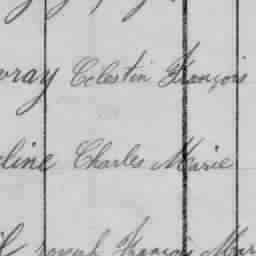 vray Celestin François
line Charles Marie
Joseph François Mar